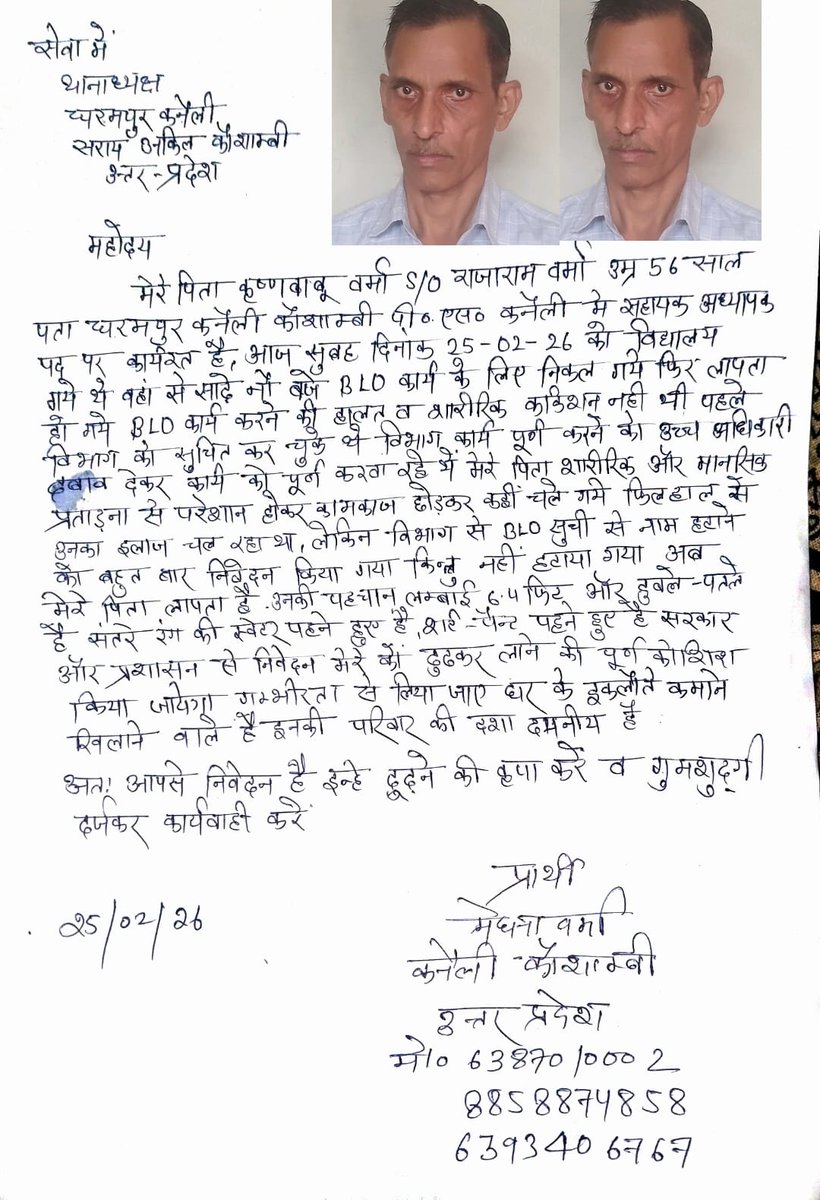 सेवा में
थानाध्यक्ष
चरमपुर कनैली
सराय अकिल कौशाम्बी
उत्तर-प्रदेश
महोदय
मेरे पिता कृष्णबाबू वर्मा S/O राजाराम वर्मा उम्र 56 साल
पता चरमपुर कनैली कौशाम्बी पी०एस० कनैली मे सहायक अध्यापक
पद पर कार्यरत है, आज सुबह दिनाक 25-02-26 को विद्यालय
गये थे वहां से साढे नौ बजे BLO कार्य के लिए निकल गये फिर लापता
हो गये BLO कार्य करने की हालत व शारीरिक कंडिशन नही थी पहले
विभाग को सुचित कर चुके थे विभाग कार्य पूर्ण करने को उच्च अधिकारी
दबाव देकर कार्य को पूर्ण करवा रहे थें मेरे पिता शारीरिक और मानसिक
प्रताड़ना से परेशान होकर कामकाज छोड़कर कहीं चले गये फिलहाल से
उनका इलाज चल रहा था, लेकिन विभाग से BLO सुची से नाम हटाने
को बहुत बार निवेदन किया गया किन्तु नहीं हटाया गया अब
मेरे पिता लापता है. उनकी पहचान लम्बाई 6.4 फिट और दुबले-पतले
है संतरे रंग की स्वेटर पहने हुए है, शर्ट-पैन्ट पहने हुए है सरकार
और प्रशासन से निवेदन मेरे को ढुढकर लाने की पूर्ण कोशिश
किया जायेगा गम्भीरता से लिया जाए घर के इकलौते कमाने
खिलाने वाले है इनकी परिवार की दशा दयनीय है
अत! आपसे निवेदन है इन्हे ढूढ़ने की कृपा करें व गुमशुदगी
दर्जकर कार्यवाही करें
प्रार्थी
वर्मा
25/02/26
कनैली-कौशाम्बी
उत्तर प्रदेश
मो० 6387010002
8858874858
6393406767